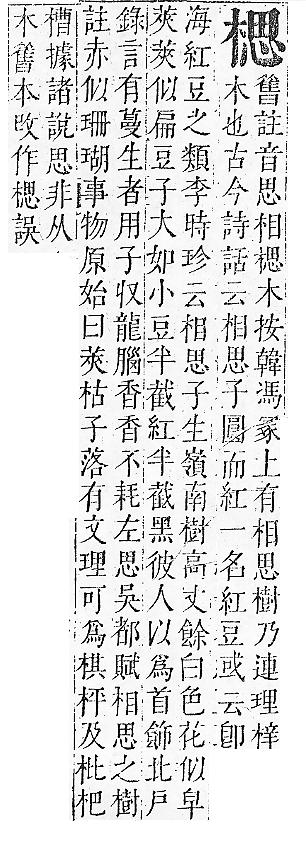 楒
舊註音思相楒木按韓馮冢上有相思樹乃連理梓
木也古今詩話云相思子圓而紅一名紅豆或云卽
海紅豆之類李時珍云相思子生嶺南樹高丈餘白色花似皁
莢莢似扁豆子大如小豆半截紅半截黑彼人以爲首飾北戶
錄言有蔓生者用子収龍腦香香不耗左思吳都賦相思之樹
註赤似珊瑚事物原始曰莢枯子落有文理可爲棋枰及枇杷
槽據諸說思非从
木舊本改作楒誤